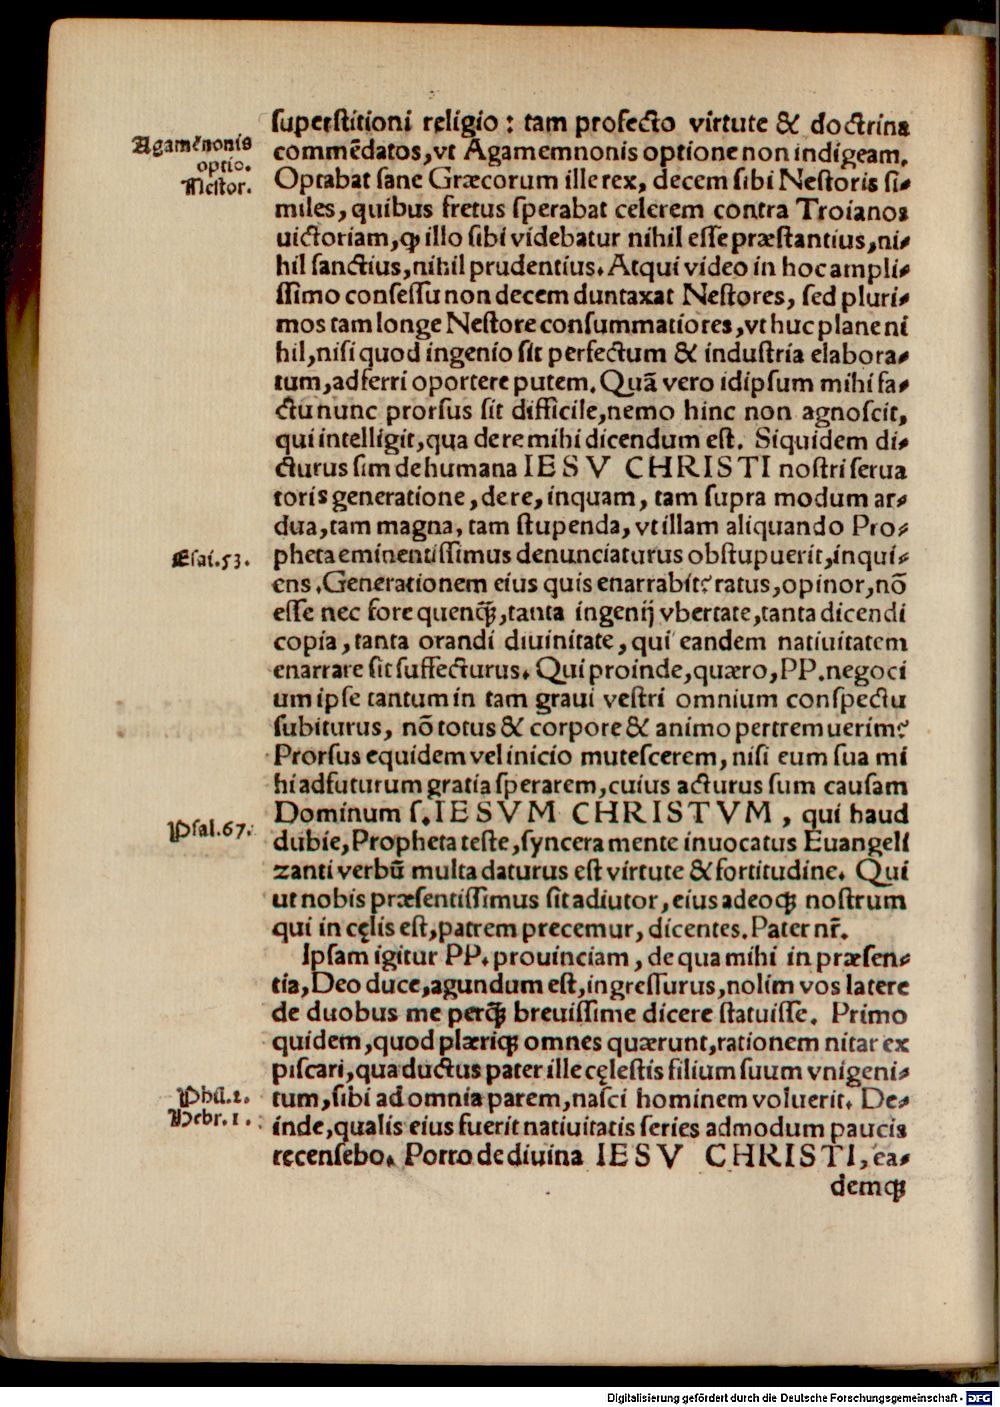 superstitioni religio: tam profecto virtute & doctrina
Agamẽnonis
optio.
Nestor.
commẽdatos, vt Agamemnonis optione non indigeam.
Optabat sane Græcorum ille rex, decem sibi Nestoris si-
miles, quibus fretus sperabat celerem contra Troianos
uictoriam, ꝙ illo sibi videbatur nihil esse præstantius, ni-
hil sanctius, nihil prudentius. Atqui video in hoc ampli-
ssimo consessu non decem duntaxat Nestores, sed pluri-
mos tam longe Nestore consummatiores, vt huc plane ni
hil, nisi quod ingenio sit perfectum & industria elabora-
tum, adferri oportere putem. Quã vero idipsum mihi fa-
ctu nunc prorsus sit difficile, nemo hinc non agnoscit,
qui intelligit, qua de re mihi dicendum est. Siquidem di-
cturus sim de humana IESV CHRISTI nostri serua
toris generatione, de re, inquam, tam supra modum ar-
dua, tam magna, tam stupenda, vt illam aliquando Pro-
Esai. 53.
pheta eminentissimus denunciaturus obstupuerit, inqui-
ens. Generationem eius quis enarrabit? ratus, opinor, nõ
esse nec fore quenꝙ, tanta ingenij vbertate, tanta dicendi
copia, tanta orandi diuinitate, qui eandem natiuitatem
enarrare sit suffecturus. Qui proinde, quæro, PP. negoci
um ipse tantum in tam graui vestri omnium conspectu
subiturus, nõ totus & corpore & animo pertremuerim?
Prorsus equidem vel inicio mutescerem, nisi eum sua mi
hi adfuturum gratia sperarem, cuius acturus sum causam
Dominum s. IESVM CHRISTVM, qui haud
Psal. 67.
dubie, Propheta teste, syncera mente inuocatus Euangeli
zanti verbũ multa daturus est virtute & fortitudine. Qui
ut nobis præsentissimus sit adiutor, eius adeoqꝫ nostrum
qui in cęlis est, patrem precemur, dicentes. Pater nr̃.
Ipsam igitur PP. prouinciam, de qua mihi in præsen-
tia, Deo duce, agundum est, ingressurus, nolim vos latere
de duobus me perꝙ breuissime dicere statuisse. Primo
quidem, quod plæriqꝫ omnes quærunt, rationem nitar ex
piscari, qua ductus pater ille cęlestis filium suum vnigeni-
Phil. 2.
Hebr. 1.
tum, sibi ad omnia parem, nasci hominem voluerit. De-
inde, qualis eius fuerit natiuitatis series admodum paucis
recensebo. Porro de diuina IESV CHRISTI, ea-
demqꝫ
Digitalisierung gefördert durch die Deutsche Forschungsgemeinschaft - DFG